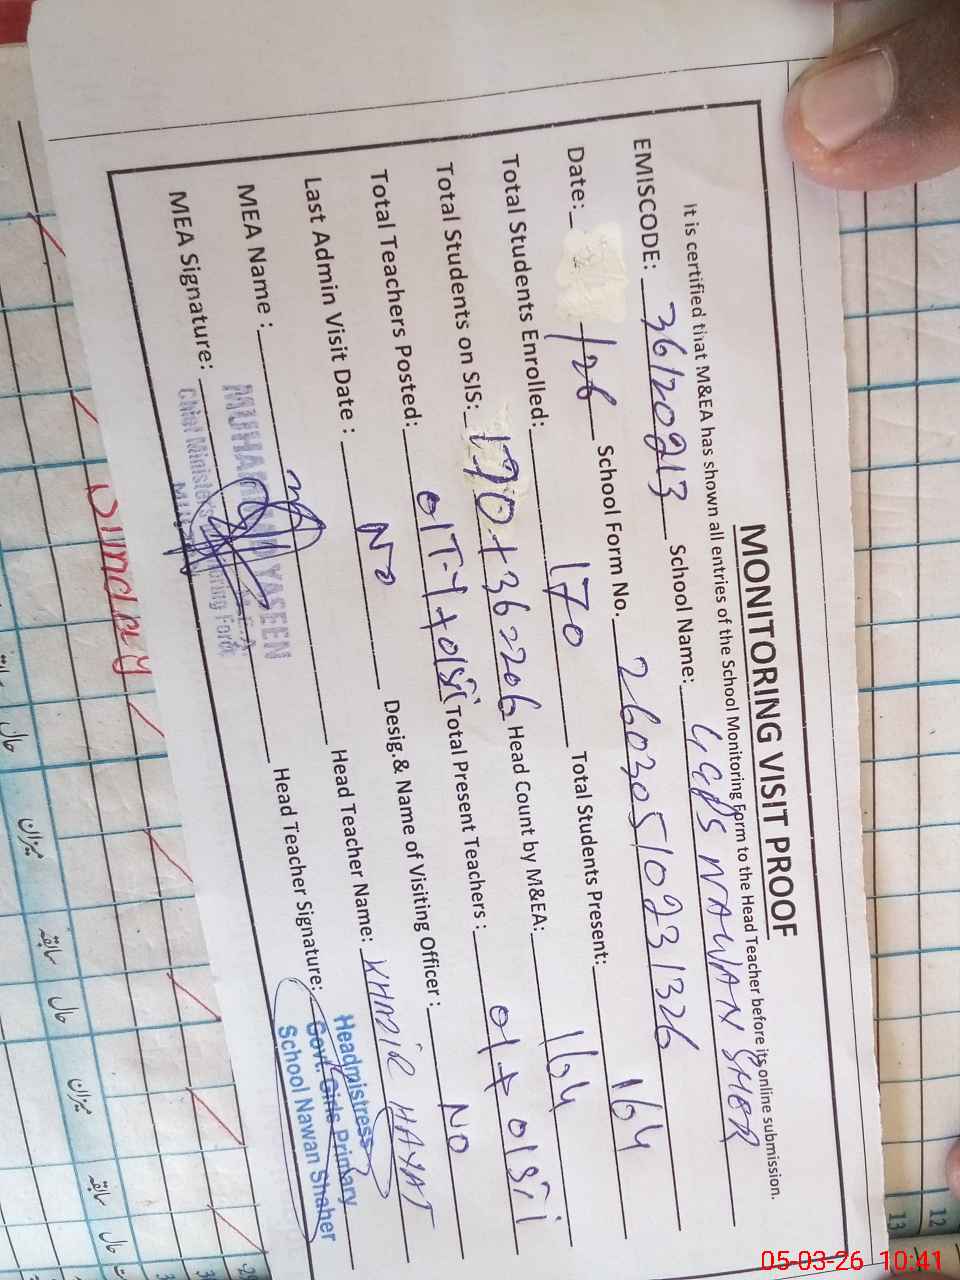 MONITORING VISIT PROOF
It is certified that M&EA has shown all entries of the School Monitoring Form to the Head Teacher before its online submission.
EMISCODE: 36120213 School Name: GGPS NAWAN SHER
Date: /26 School Form No. 26030510231326
Total Students Enrolled: 170 Total Students Present: 164
Total Students on SIS: 170+36=206 Head Count by M&EA: 164
Total Teachers Posted: 01T-Y+01 Total Present Teachers: 01+01
Last Admin Visit Date: No Desig.& Name of Visiting Officer: No
MEA Name: Head Teacher Name: KHADIR HAYAT
MEA Signature: Head Teacher Signature:
MUHAMMAD YASEEN
M.E.A
Chief Minister's Monitoring Force
Headmistress
Govt. Girls Primary
School Nawan Shaher
Sunday
حال
میزان
سابقہ
حال
میزان
سابقہ
حال
12
13
05-03-26 10:41